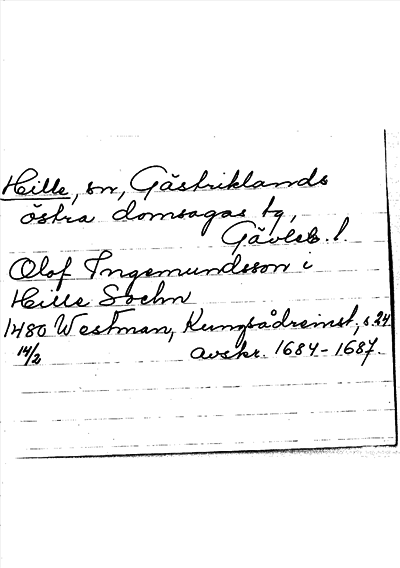 Hille, sn, Gästriklands
östra domsagas tg,
Gävleb. l.
Olof Ingemundsson i
Hille Sochn
1480 Westman, Kungsådreinst, s 24
14/2 avskr. 1684-1687.